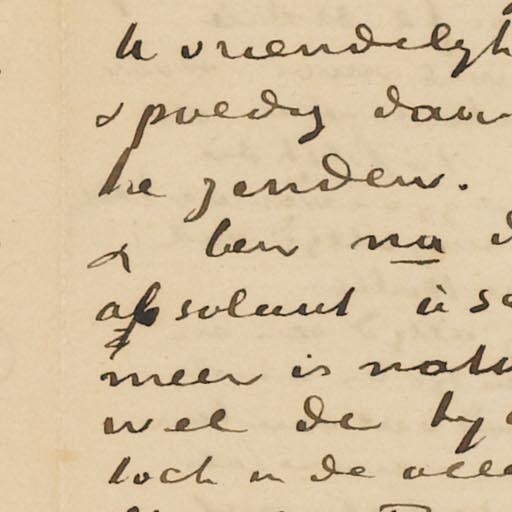 U vriendelyk
spoedig daar
te zenden.
& ben na d
absoluut à s
meer is nat
wel de ty
toch in de alle